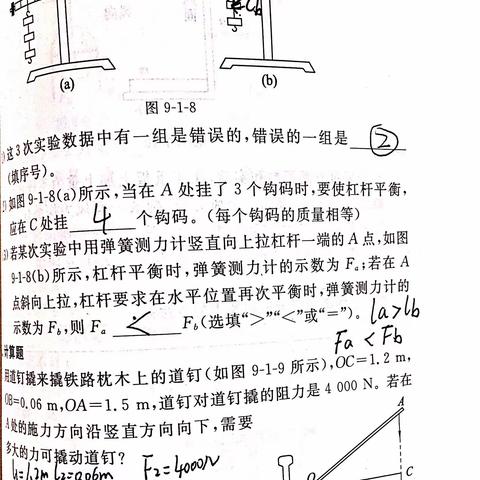 Cb
(a)
(b)
图 9-1-8
)这 3 次实验数据中有一组是错误的,错误的一组是 ②
(填序号)。
)如图 9-1-8(a)所示,当在 A 处挂了 3 个钩码时,要使杠杆平衡,
应在 C 处挂 4 个钩码。(每个钩码的质量相等)
3)若某次实验中用弹簧测力计竖直向上拉杠杆一端的 A 点,如图
9-1-8(b)所示,杠杆平衡时,弹簧测力计的示数为 Fa;若在 A
点斜向上拉,杠杆要求在水平位置再次平衡时,弹簧测力计的
示数为 Fb,则 Fa < Fb(选填“>”“<”或“=”)。 la>lb
Fa < Fb
计算题
用道钉撬来撬铁路枕木上的道钉(如图 9-1-9 所示),OC=1.2 m,
OB=0.06 m,OA=1.5 m,道钉对道钉撬的阻力是 4 000 N。若在
A 处的施力方向沿竖直方向向下,需要
多大的力可撬动道钉?
l1=1.2m l2=0.06m F2=4000N
A
C